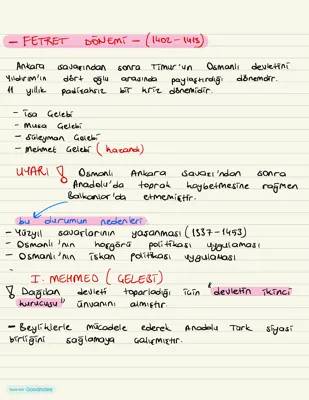 - FETRET DÖNEMİ - (1402-1413)
Ankara savaşından sonra Timur'un Osmanlı devletini
Yıldırım'ın dört oğlu arasında paylaştırdığı dönemdir.
11 yıllık padişahsız bir kriz dönemidir.
- İsa Çelebi
- Musa Çelebi
- Süleyman Çelebi
- Mehmet Çelebi (kazandı)
UYARI ! Osmanlı Ankara savaşı'ndan sonra
Anadolu'da toprak kaybetmesine rağmen
Balkanlar'da etmemiştir.
bu durumun nedenleri
- Yüzyıl savaşlarının yaşanması (1337-1453)
- Osmanlı'nın hoşgörü politikası uygulaması
- Osmanlı'nın iskan politikası uygulaması
I. MEHMED (ÇELEBİ)
! Dağılan devleti toparladığı için "devletin ikinci
kurucusu" ünvanını almıştır.
- Beyliklerle mücadele ederek Anadolu Türk siyasi
birliğini sağlamaya çalışmıştır.
Made with Goodnotes